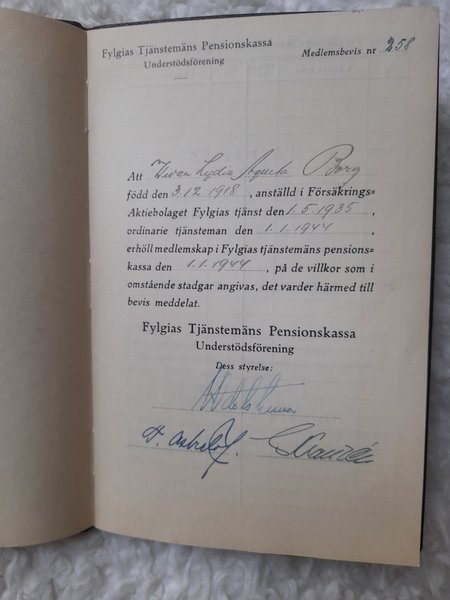 Fylgias Tjänstemäns Pensionskassa
Understödsförening
Medlemsbevis nr 258
Att Vivan Lydia Agneta Borg
född den 3.12.1918, anställd i Försäkrings-
Aktiebolaget Fylgias tjänst den 1.5.1935,
ordinarie tjänsteman den 1.1.1944,
erhöll medlemskap i Fylgias tjänstemäns pensions-
kassa den 1.1.1944, på de villkor som i
omstående stadgar angivas, det varder härmed till
bevis meddelat.
Fylgias Tjänstemäns Pensionskassa
Understödsförening
Dess styrelse: